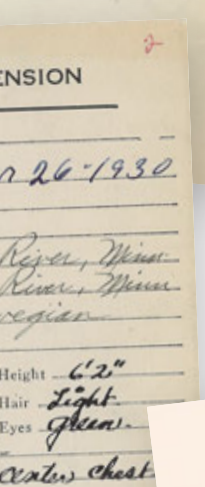 2
ENSION
26-1930
River, Minn
River, Minn
vegian
Height 6'2"
Hair Light
Eyes green.
center chest